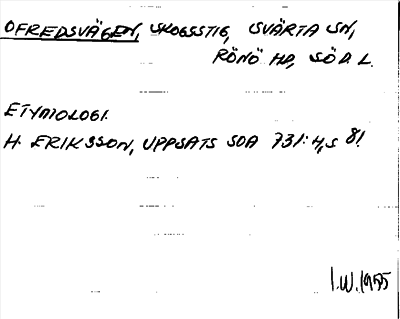 OFREDSVÄGEN, SKOGSSTIG, SVÄRTA SN,
RÖNÖ HD, SÖD L.
ETYMOLOGI.
H. ERIKSSON, UPPSATS SOA 731:4, S 81.
I.W. 1955